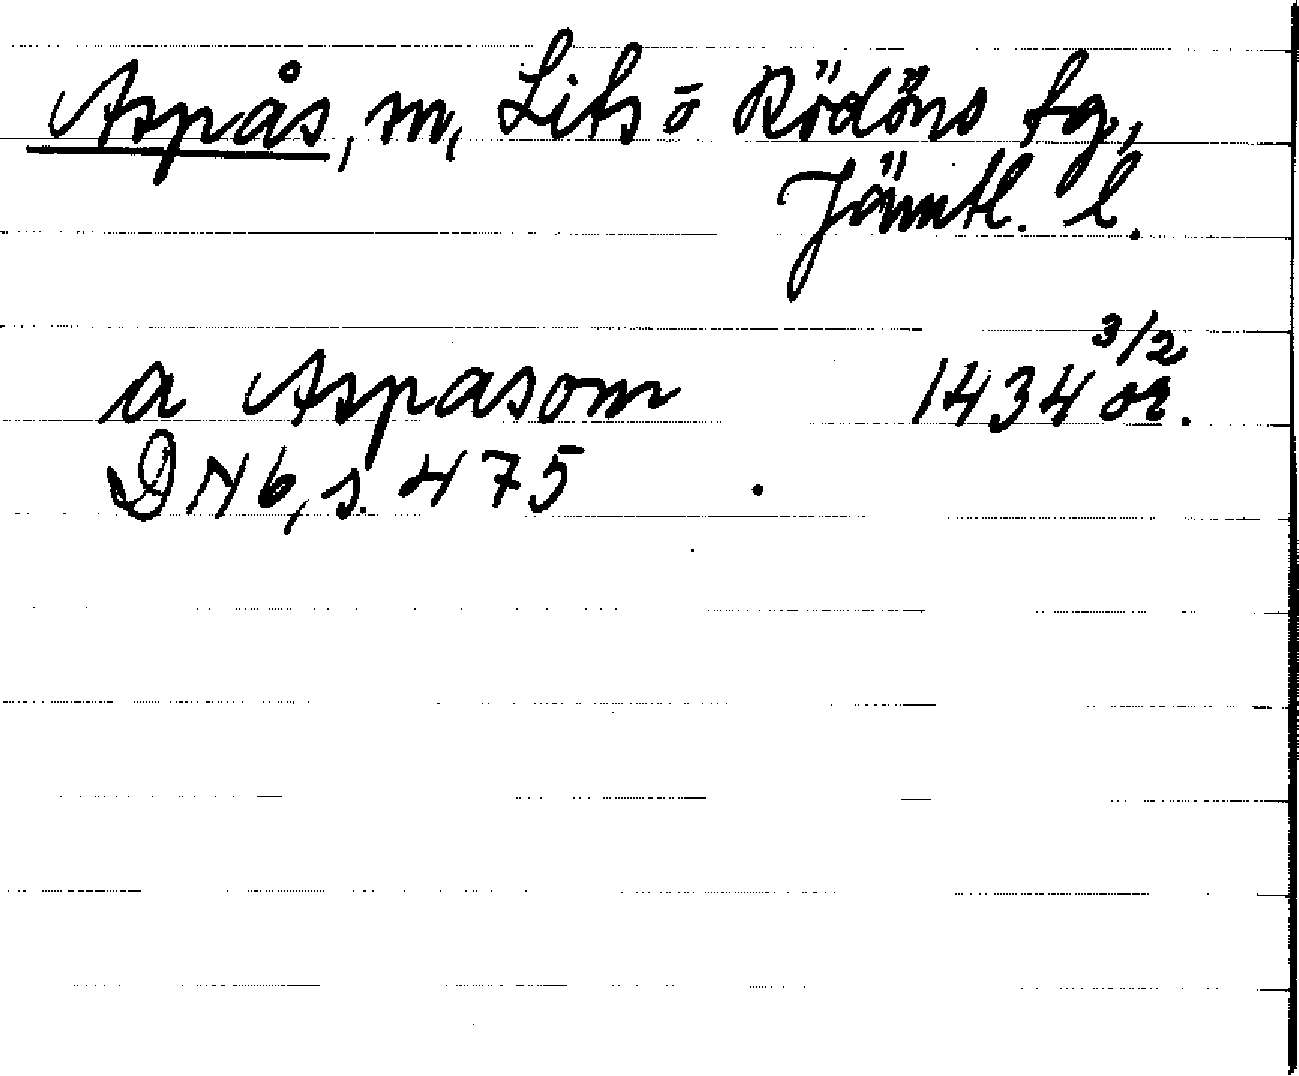 Aspås, sn, Lits ō Rödöns tg,
Jämtl. l.
a Aspasom 1434 3/2 or.
DN 6, s. 475